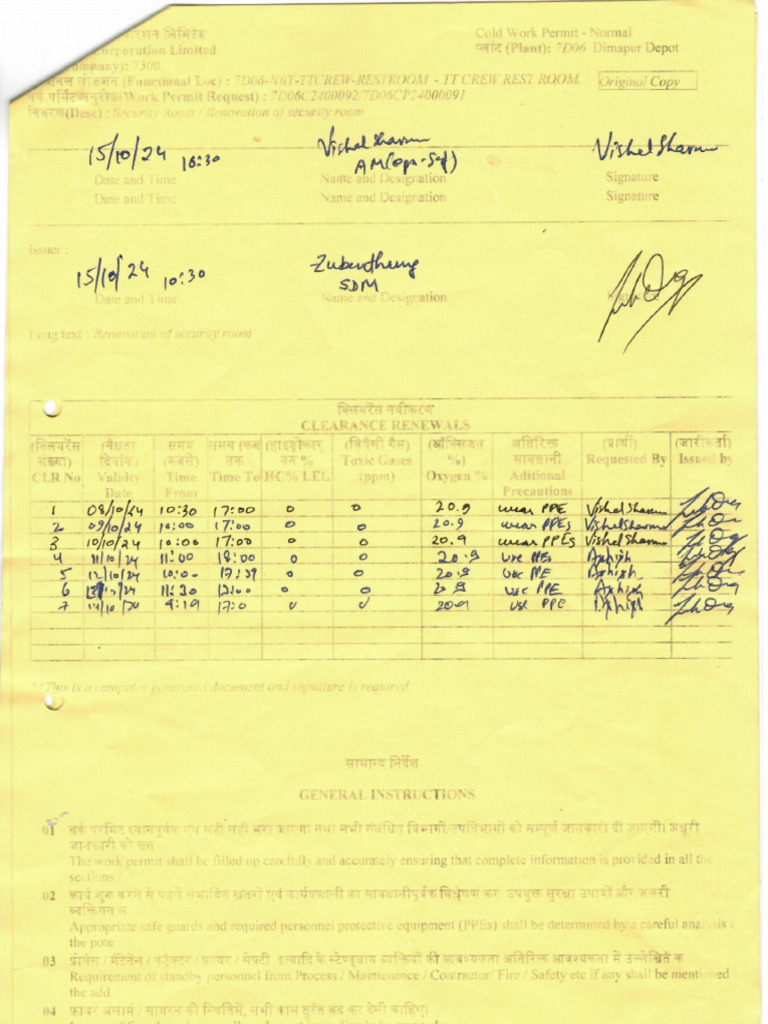 रेशन लिमिटेड
Corporation Limited
Cold Work Permit - Normal
mpany): 7300
प्लांट (Plant): 7D06 Dimapur Depot
लोकेशन (Functional Loc) : 7D06-NBT-TTCREW-RESTROOM - TT CREW REST ROOM
Original Copy
(Work Permit Request) : 7D06C2400092/7D06CP24000091
विवरण(Desc) : Security Room : Renovation of security room
15/10/24 16:30 Vishel Sharma Vishel Sharma
AM(Ops-Sef)
Date and Time Name and Designation Signature
Date and Time Name and Designation Signature
Issuer :
15/10/24 10:30 Zubenthung
SDM
Date and Time Name and Designation
Long text : Renovation of security room
क्लियरेंस नवीकरण
CLEARANCE RENEWALS
(क्लियरेंस संख्या) CLR No (वैधता दिनांक) Validity Date समय (कबसे) Time From समय (कब तक Time To (हाइड्रोकार्बन % HC% LEL (विषैली गैस) Toxic Gases (ppm) (ऑक्सिजन %) Oxygen % अतिरिक्त सावधानी Aditional Precautions (प्रार्थी) Requested By (जारीकर्ता) Issued by
1 08/10/24 10:30 17:00 0 0 20.9 wear PPE Vishel Sharma
2 09/10/24 10:00 17:00 0 0 20.9 wear PPEs Vishel Sharma
3 10/10/24 10:00 17:00 0 0 20.9 wear PPEs Vishel Sharma
4 11/10/24 11:00 18:00 0 0 20.9 use PPEs Ashish
5 12/10/24 10:00 17:39 0 0 20.9 use PPE Ashish
6 11:30 0 0 20.9 use PPE Ashish
7 14/10/24 9:19 17:0 0 0 20.9 use PPE Ashish
**This is a computer generated document and signature is required.
सामान्य निर्देश
GENERAL INSTRUCTIONS
01 वर्क परमिट ध्यानपूर्वक एवं सही सही भरा जाएगा तथा सभी संबंधित विभागों/उपविभागों को सम्पूर्ण जानकारी दी जाएगी। अधूरी
जानकारी को खत
The work permit shall be filled up carefully and accurately ensuring that complete information is provided in all the
sections /
02 कार्य शुरू करने से पहले संभावित खतरों एवं कार्यप्रणाली का सावधानीपूर्वक विश्लेषण कर उपयुक्त सुरक्षा उपायों और जरूरी
व्यक्तिगत स
Appropriate safe guards and required personnel protective equipment (PPEs) shall be determined by a careful analysis
the pote
03 प्रोसेस / मेंटेनेंस / कांट्रैक्टर / फ़ायर / सेफ्टी इत्यादि के स्टैण्डबाय व्यक्तियों की आवश्यकता अतिरिक्त आवश्यकता में उल्लेखित क
Requirement of standby personnel from Process / Maintenance / Contractor/ Fire / Safety etc if any shall be mentioned
the add
04 फ़ायर अलार्म / सायरन की स्थितिमें, सभी काम तुरंत बंद कर देनी चाहिए।